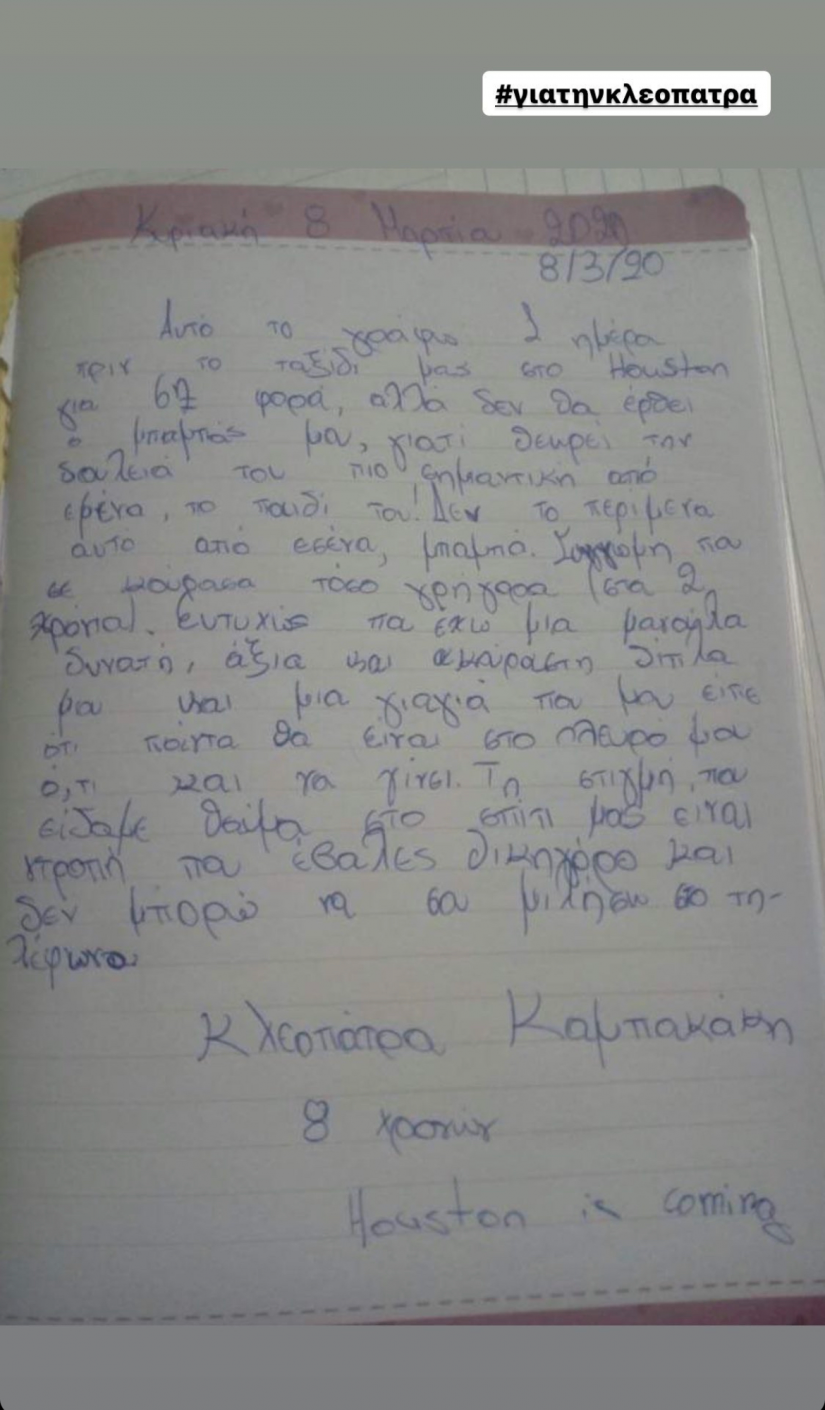 #γιατηνκλεοπατρα
Κυριακή 8 Μαρτίου 2020
8/3/20
Αυτό το γράφω 1 ημέρα
πριν το ταξίδι μας στο Houston
για 6η φορά, αλλά δεν θα έρθει
ο μπαμπάς μου, γιατί θεωρεί την
δουλειά του πιο σημαντική από
εμένα, το παιδί του! Δεν το περίμενα
αυτό από εσένα, μπαμπά. Συγγνώμη που
σε κούρασα τόσο γρήγορα (στα 2
χρόνια). ευτυχώς που έχω μια μανούλα
δυνατή, άξια και ακούραστη δίπλα
μου και μια γιαγιά που μου είπε
ότι πάντα θα είναι στο πλευρό μου
ό,τι και να γίνει. Τη στιγμή που
είδαμε θαύμα στο σπίτι μας είναι
ντροπή που έβαλες δικηγόρο και
δεν μπορώ να σου μιλήσω στο τη-
λέφωνο
Κλεοπάτρα Καμπακάκη
8 χρονών
Houston is coming